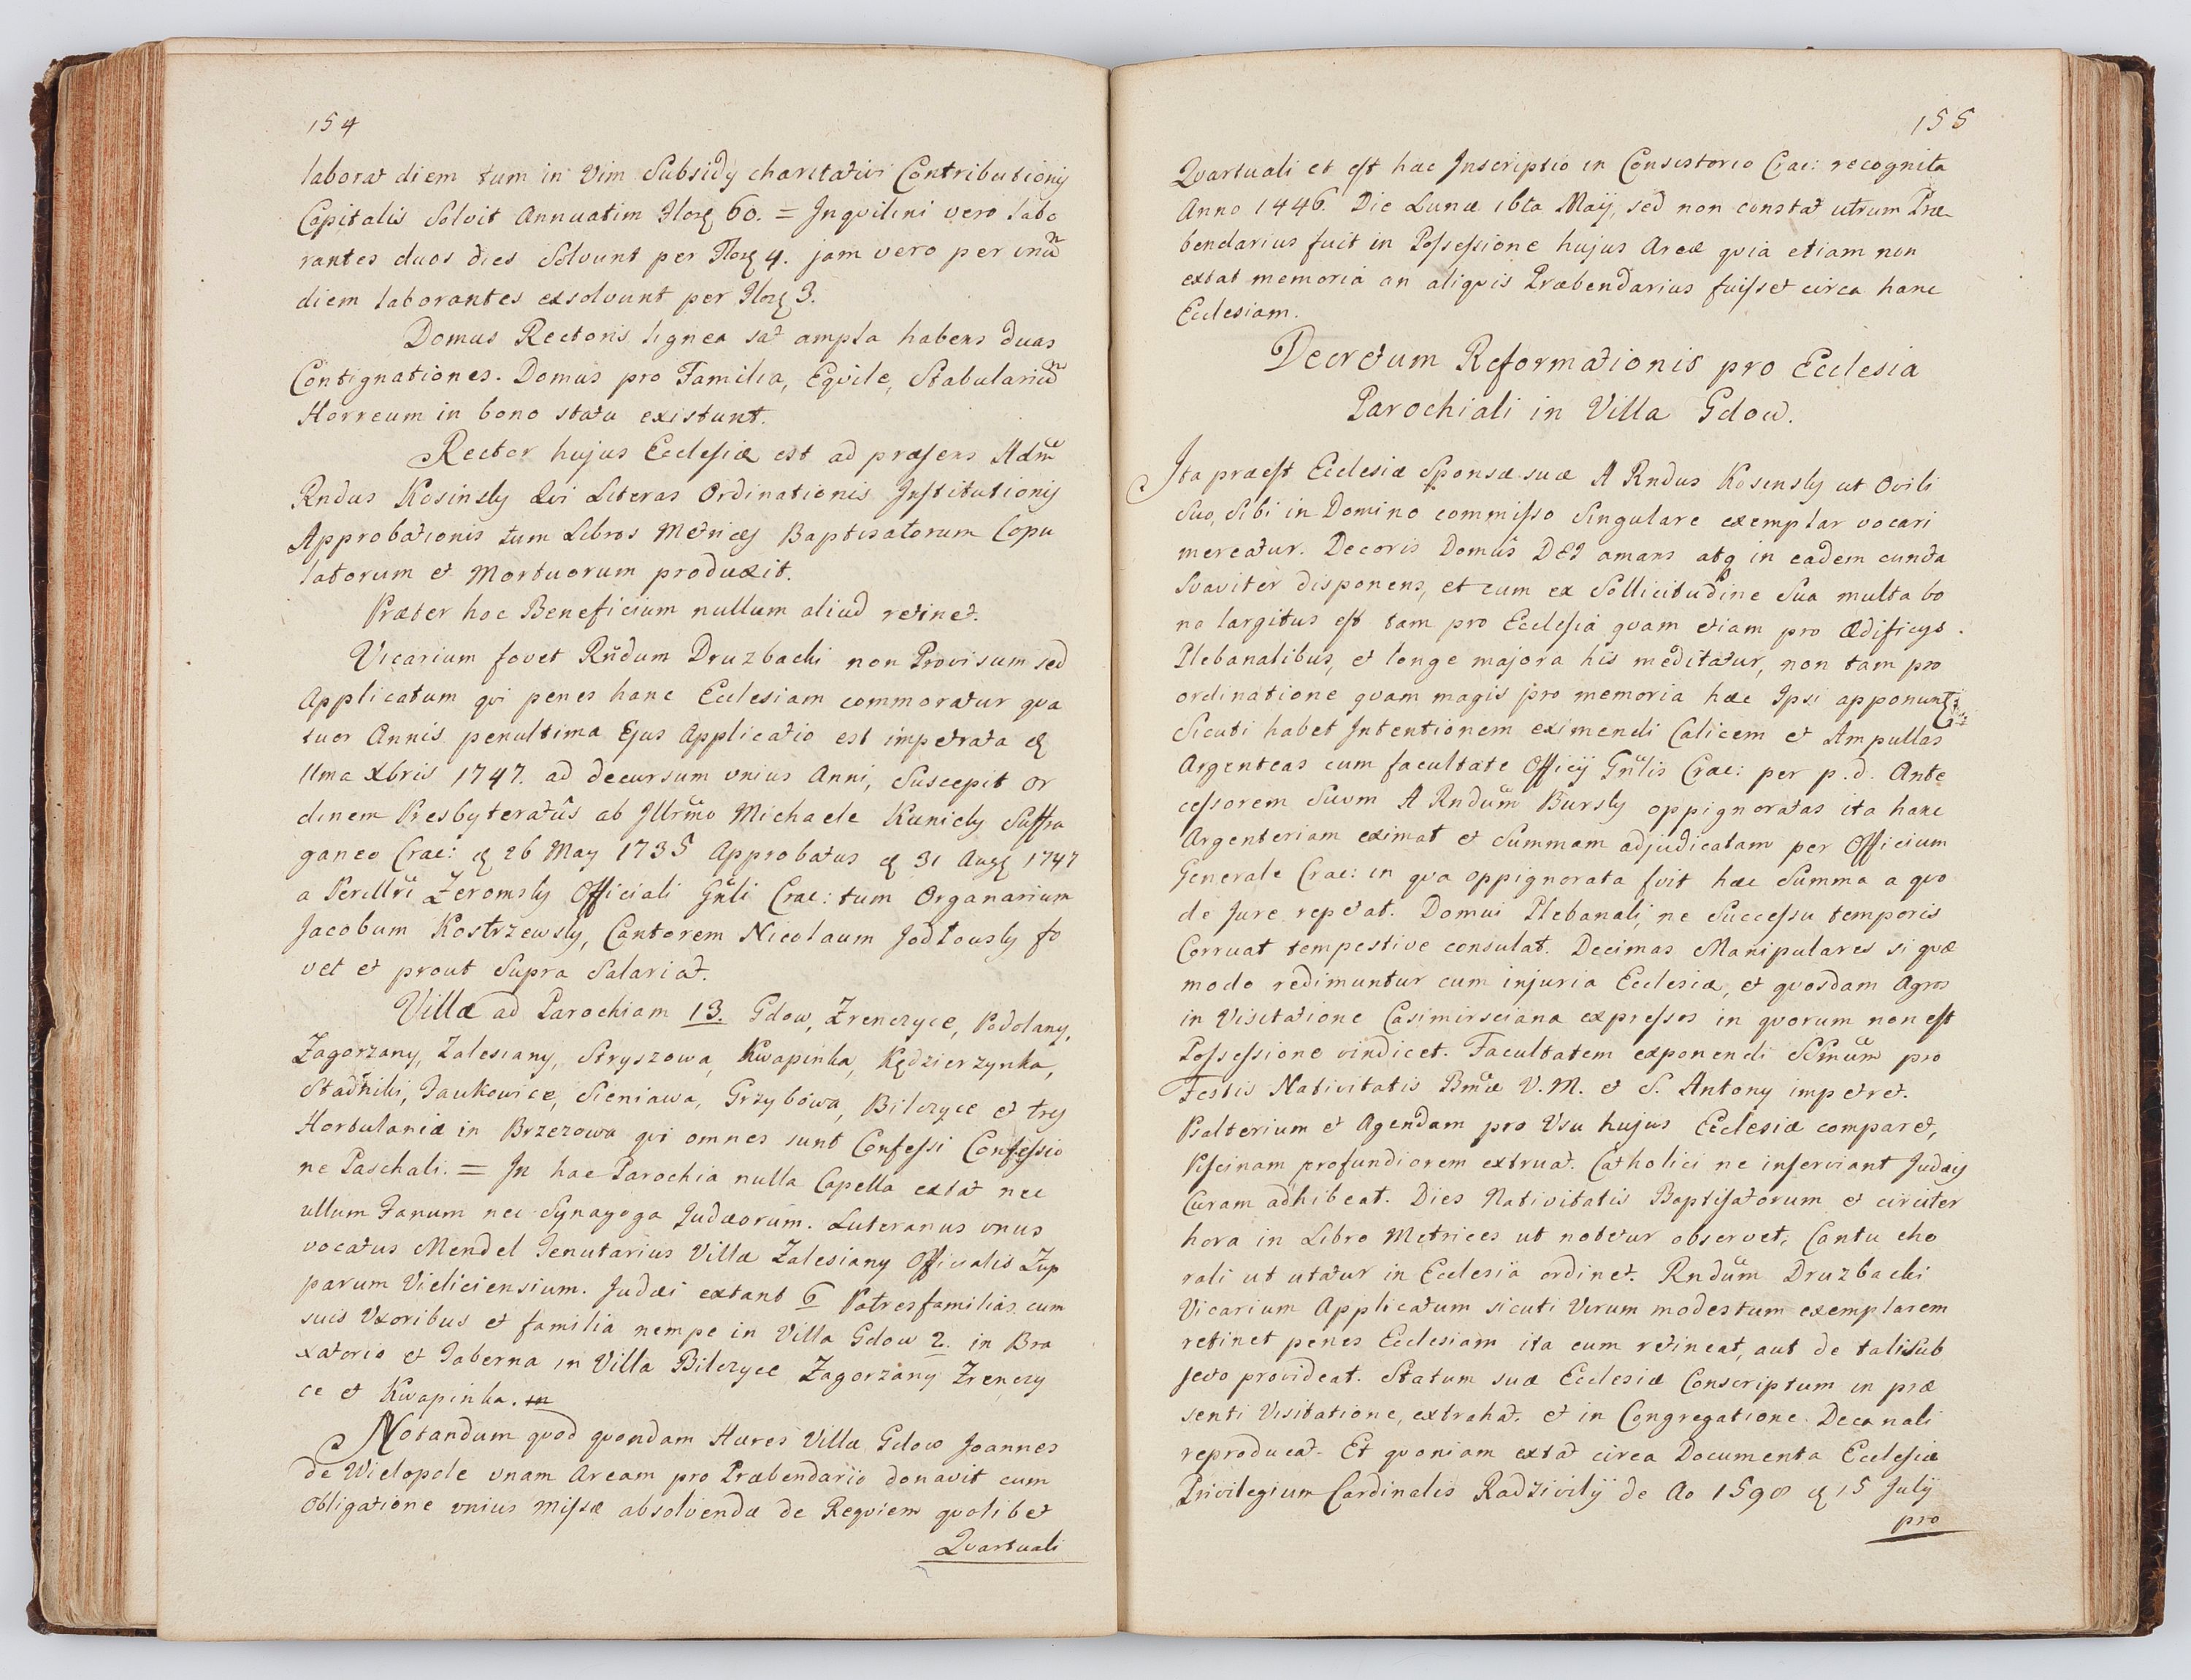 154
laborat diem tum in Vim Subsidy charitativi Contributionis
Capitalis Solvit Annuatim Floreṇ 60. = Inqvilini vero labo
rantes duos dies Solvunt per Floreṇ 4. jam vero per unũ
diem laborantes exsolvunt per Floreṇ 3.
Domus Rectoris lignea sat ampla habens duas
Contignationes. Domus pro Familia, Eqvile, Stabulariũ
Horreum in bono statu existunt.
Rector hujus Ecclesiæ est ad præsens Adm̃
Rndus Kosinsky Qvi Literas Ordinationis Institutionis
Approbationis tum Libros Metrices Baptisatorum Copu
latorum et Mortuorum produxit.
Præter hoc Beneficium nullum aliud retinet.
Vicarium fovet Rñdum Druzbacki non Provisum sed
Applicatum qvi penes hanc Ecclesiam commoratur qva
tuor Annis penultima Ejus Applicatio est impetrata d
11ma Xbris 1747. ad decursum unius Anni, Suscepit Or
dinem Presbyteratûs ab Illrm̃o Michaele Kunicky Suffra
ganeo Crac: d 26 May 1735 Approbatus d 31 Augı 1747
a Perillrĩ Żeromsky Officiali Gñli Crac: tum Organarium
Jacobum Kostrzewsky, Cantorem Nicolaum Jodłousky fo
vet et prout Supra Salariat.
Villæ ad Parochiam 13. Gdow, Zrenczyce, Podolany,
Zagorzany, Zalesiany, Stryszowa, Kwapinka, Kędzierzynka,
Stadniki, Jaukowice, Sieniawa, Grzybowa, Bilczyce et tres
Hortulaniæ in Brzezowa qvi omnes sunt Confessi Confessio
ne Paschali. = In hac Parochia nulla Capella extat nec
ullum Fanum nec Synagoga Judæorum. Luteranus unus
vocatus Mendel Tenutarius Villæ Zalesiany Officialis Zup
parum Vieliciensium. Judæi extant 6 Patresfamilias cum
suis Uxoribus et familia nempe in Villa Gdow 2. in Bra
xatorio et Taberna in Villa Bilczyce Zagorzany Zrenczy
ce et Kwapinka. in
Notandum qvod qvondam Hæres Villæ Gdow Joannes
de Wielopole unam Aream pro Præbendario donavit cum
Obligatione unius Missæ absolvendæ de Reqviem qvolibet
Qvartuali
155
Qvartuali et est hæc Inscriptio in Consistorio Crac: recognita
Anno 1446. Die Lunæ 16ta Maÿ, sed non constat utrum Præ-
bendarius fuit in Possessione hujus Areæ qvia etiam non
extat memoria an aliqvis Præbendarius fuisset circa hanc
Ecclesiam.
Decretum Reformationis pro Ecclesia
Parochiali in Villa Gdow.
Ita præest Ecclesiæ Sponsæ suæ A Rndus Kosinsky ut Ovili
Suo, Sibi in Domino commisso Singulare exemplar vocari
mereatur. Decoris Domûs DEI amans atq in eadem cuncta
Svaviter disponens, et cum ex Sollicitudine Sua multa bo
na largitus est tam pro Ecclesia qvam etiam pro Ædificys
Plebanalibus, et longe majora his meditatur, non tam pro
ordinatione qvam magis pro memoria hæc Ipsi apponunt
Sicuti habet Intentionem eximendi Calicem et Ampullas
Argenteas cum facultate Officÿ Gñlis Crac: per p. d. Ante
cessorem Suum A Rndũm Bursky oppignoratas ita hanc
Argenteriam eximat et Summam adjudicatam per Officium
Generale Crac: in qva oppignorata fvit hæc Summa a qvo
de Jure repetat. Domui Plebanali, ne Successu temporis
Corruat tempestive consulat. Decimas Manipulares si qvæ
modo redimuntur cum injuria Ecclesiæ, et qvosdam Agros
in Visitatione Casimirsciana expressos in qvorum non est
Possessione vindicet. Facultatem exponendi SSm̃um pro
Festis Nativitatis Bm̃æ V. M. et S. Antony impetret.
Psalterium et Agendam pro Usu hujus Ecclesiæ comparet,
Piscinam profundiorem extruat. Catholici ne inserviant Judæis
Curam adhibeat. Dies Nativitatis Baptisatorum et circiter
hora in Libro Metrices ut notetur observet, Cantu cho
rali ut utatur in Ecclesia ordinet. Rndũm Druzbacki
Vicarium Applicatum sicuti Virum modestum exemplarem
retinet penes Ecclesiam ita eum retineat, aut de tali sub
jecto provideat. Statum suæ Ecclesiæ Conscriptum in præ
senti Visitatione, extrahat, et in Congregatione Decanali
reproducat. Et qvoniam extat circa Documenta Ecclesiæ
Privilegium Cardinalis Radzivilÿ de Ao 1598 d 15 July
pro